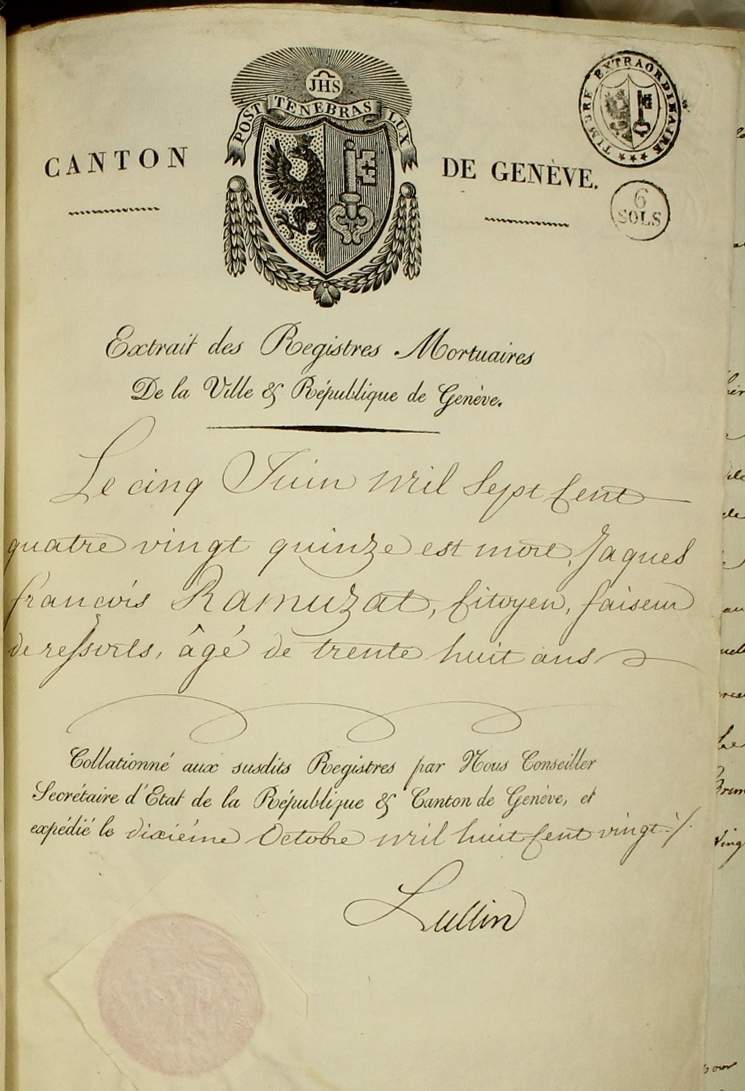 JHS
POST TENEBRAS LUX
TIMBRE EXTRAORDINAIRE
CANTON DE GENÈVE.
6
SOLS
Extrait des Registres Mortuaires
De la Ville & République de Genève.
Le cinq Juin mil Sept Cent
quatre vingt quinze est mort, Jaques
françois Ramuzat, Citoyen, faiseur
de ressorts, âgé de trente huit ans
Collationné aux susdits Registres par Nous Conseiller
Secrétaire d'Etat de la République & Canton de Genève, et
expédié le dixiéme Octobre mil huit Cent vingt ./.
Lullin